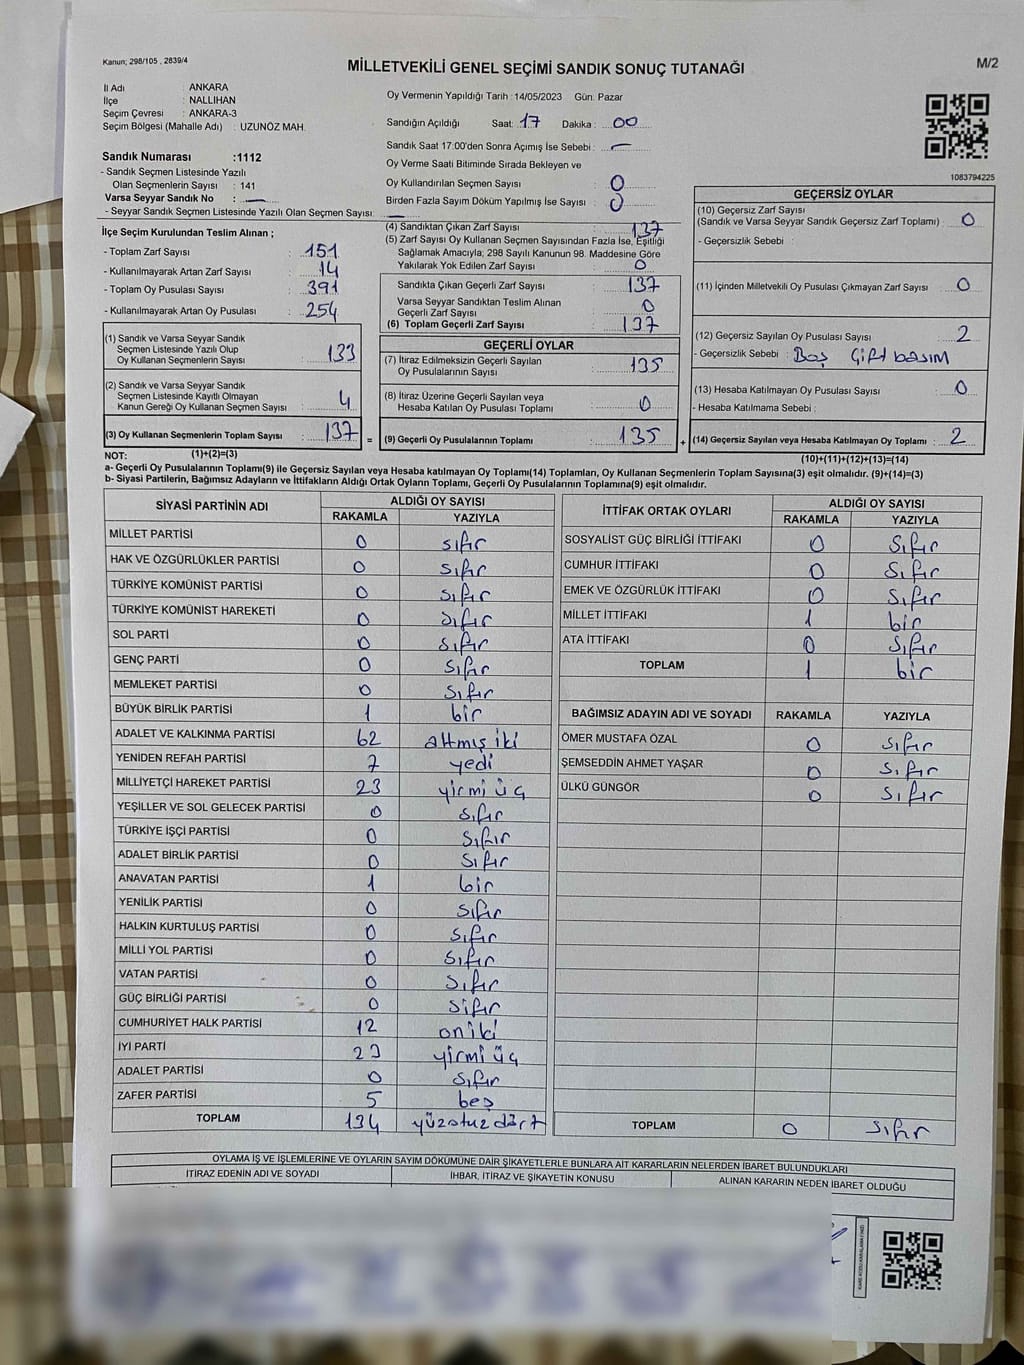 Kanun; 298/105 , 2839/4
MİLLETVEKİLİ GENEL SEÇİMİ SANDIK SONUÇ TUTANAĞI
M/2
İl Adı : ANKARA
İlçe : NALLIHAN
Seçim Çevresi : ANKARA-3
Seçim Bölgesi (Mahalle Adı) : UZUNÖZ MAH.
Sandık Numarası :1112
- Sandık Seçmen Listesinde Yazılı
Olan Seçmenlerin Sayısı : 141
Varsa Seyyar Sandık No : —
- Seyyar Sandık Seçmen Listesinde Yazılı Olan Seçmen Sayısı: —
Oy Vermenin Yapıldığı Tarih :14/05/2023 Gün: Pazar
Sandığın Açıldığı Saat: 17 Dakika : 00
Sandık Saat 17:00'den Sonra Açımış İse Sebebi : —
Oy Verme Saati Bitiminde Sırada Bekleyen ve
Oy Kullandırılan Seçmen Sayısı : 0
Birden Fazla Sayım Döküm Yapılmış İse Sayısı : 0
1083794225
İlçe Seçim Kurulundan Teslim Alınan ;
- Toplam Zarf Sayısı : 151
- Kullanılmayarak Artan Zarf Sayısı : 14
- Toplam Oy Pusulası Sayısı : 391
- Kullanılmayarak Artan Oy Pusulası : 254
(1) Sandık ve Varsa Seyyar Sandık
Seçmen Listesinde Yazılı Olup
Oy Kullanan Seçmenlerin Sayısı : 133
(2) Sandık ve Varsa Seyyar Sandık
Seçmen Listesinde Kayıtlı Olmayan
Kanun Gereği Oy Kullanan Seçmen Sayısı : 4
(3) Oy Kullanan Seçmenlerin Toplam Sayısı : 137 =
(4) Sandıktan Çıkan Zarf Sayısı : 137
(5) Zarf Sayısı Oy Kullanan Seçmen Sayısından Fazla İse, Eşitliği
Sağlamak Amacıyla; 298 Sayılı Kanunun 98. Maddesine Göre
Yakılarak Yok Edilen Zarf Sayısı : 0
Sandıkta Çıkan Geçerli Zarf Sayısı : 137
Varsa Seyyar Sandıktan Teslim Alınan
Geçerli Zarf Sayısı : 0
(6) Toplam Geçerli Zarf Sayısı : 137
GEÇERLİ OYLAR
(7) İtiraz Edilmeksizin Geçerli Sayılan
Oy Pusulalarının Sayısı : 135
(8) İtiraz Üzerine Geçerli Sayılan veya
Hesaba Katılan Oy Pusulası Toplamı : 0
(9) Geçerli Oy Pusulalarının Toplamı : 135 +
GEÇERSİZ OYLAR
(10) Geçersiz Zarf Sayısı
(Sandık ve Varsa Seyyar Sandık Geçersiz Zarf Toplamı) : 0
- Geçersizlik Sebebi :
(11) İçinden Milletvekili Oy Pusulası Çıkmayan Zarf Sayısı : 0
(12) Geçersiz Sayılan Oy Pusulası Sayısı : 2
- Geçersizlik Sebebi : Boş Çift basım
(13) Hesaba Katılmayan Oy Pusulası Sayısı : 0
- Hesaba Katılmama Sebebi :
(14) Geçersiz Sayılan veya Hesaba Katılmayan Oy Toplamı : 2
NOT: (1)+(2)=(3)
(10)+(11)+(12)+(13)=(14)
a- Geçerli Oy Pusulalarının Toplamı(9) ile Geçersiz Sayılan veya Hesaba katılmayan Oy Toplamı(14) Toplamları, Oy Kullanan Seçmenlerin Toplam Sayısına(3) eşit olmalıdır. (9)+(14)=(3)
b- Siyasi Partilerin, Bağımsız Adayların ve İttifakların Aldığı Ortak Oyların Toplamı, Geçerli Oy Pusulalarının Toplamına(9) eşit olmalıdır.
SİYASİ PARTİNİN ADI ALDIĞI OY SAYISI
RAKAMLA YAZIYLA
MİLLET PARTİSİ 0 sıfır
HAK VE ÖZGÜRLÜKLER PARTİSİ 0 sıfır
TÜRKİYE KOMÜNİST PARTİSİ 0 sıfır
TÜRKİYE KOMÜNİST HAREKETİ 0 sıfır
SOL PARTİ 0 sıfır
GENÇ PARTİ 0 sıfır
MEMLEKET PARTİSİ 0 sıfır
BÜYÜK BİRLİK PARTİSİ 1 bir
ADALET VE KALKINMA PARTİSİ 62 altmış iki
YENİDEN REFAH PARTİSİ 7 yedi
MİLLİYETÇİ HAREKET PARTİSİ 23 yirmi üç
YEŞİLLER VE SOL GELECEK PARTİSİ 0 sıfır
TÜRKİYE İŞÇİ PARTİSİ 0 sıfır
ADALET BİRLİK PARTİSİ 0 sıfır
ANAVATAN PARTİSİ 1 bir
YENİLİK PARTİSİ 0 sıfır
HALKIN KURTULUŞ PARTİSİ 0 sıfır
MİLLİ YOL PARTİSİ 0 sıfır
VATAN PARTİSİ 0 sıfır
GÜÇ BİRLİĞİ PARTİSİ 0 sıfır
CUMHURİYET HALK PARTİSİ 12 oniki
İYİ PARTİ 23 yirmi üç
ADALET PARTİSİ 0 sıfır
ZAFER PARTİSİ 5 beş
TOPLAM 134 yüzotuz dört
İTTİFAK ORTAK OYLARI ALDIĞI OY SAYISI
RAKAMLA YAZIYLA
SOSYALİST GÜÇ BİRLİĞİ İTTİFAKI 0 sıfır
CUMHUR İTTİFAKI 0 sıfır
EMEK VE ÖZGÜRLÜK İTTİFAKI 0 sıfır
MİLLET İTTİFAKI 1 bir
ATA İTTİFAKI 0 sıfır
TOPLAM 1 bir
BAĞIMSIZ ADAYIN ADI VE SOYADI RAKAMLA YAZIYLA
ÖMER MUSTAFA ÖZAL 0 sıfır
ŞEMSEDDİN AHMET YAŞAR 0 sıfır
ÜLKÜ GÜNGÖR 0 sıfır
TOPLAM 0 sıfır
OYLAMA İŞ VE İŞLEMLERİNE VE OYLARIN SAYIM DÖKÜMÜNE DAİR ŞİKAYETLERLE BUNLARA AİT KARARLARIN NELERDEN İBARET BULUNDUKLARI
İTİRAZ EDENİN ADI VE SOYADI İHBAR, İTİRAZ VE ŞİKAYETİN KONUSU ALINAN KARARIN NEDEN İBARET OLDUĞU